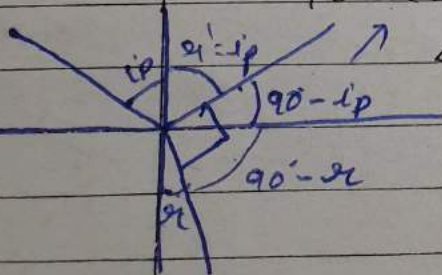 ip r'=ip
90°-ip
90°-r
r